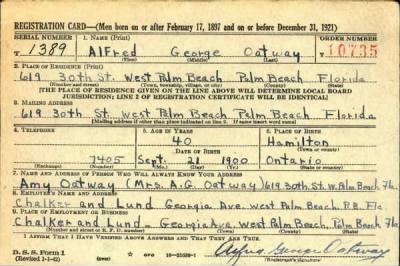 REGISTRATION CARD—(Men born on or after February 17, 1897 and on or before December 31, 1921)
SERIAL NUMBER 1. NAME (Print) ORDER NUMBER
T 1389 Alfred George Oatway 10735
(First) (Middle) (Last)
2. PLACE OF RESIDENCE (Print)
619 30th St. West Palm Beach Palm Beach Florida
(Number and street) (Town, township, village, or city) (County) (State)
[THE PLACE OF RESIDENCE GIVEN ON THE LINE ABOVE WILL DETERMINE LOCAL BOARD
JURISDICTION; LINE 2 OF REGISTRATION CERTIFICATE WILL BE IDENTICAL]
3. MAILING ADDRESS
619 30th St. West Palm Beach Palm Beach Florida
(Mailing address if other than place indicated on line 2. If same insert word same)
4. TELEPHONE 5. AGE IN YEARS 6. PLACE OF BIRTH
40 Hamilton
DATE OF BIRTH (Town or county)
7405 Sept. 21 1900 Ontario
(Exchange) (Number) (Mo.) (Day) (Yr.) (State or country)
7. NAME AND ADDRESS OF PERSON WHO WILL ALWAYS KNOW YOUR ADDRESS
Amy Oatway (Mrs. A.G. Oatway) 619 30th St. W. Palm Beach Fla.
8. EMPLOYER'S NAME AND ADDRESS
Chalker and Lund Georgia Ave. West Palm Beach, P.B. Fla
9. PLACE OF EMPLOYMENT OR BUSINESS
Chalker and Lund Georgia Ave. West Palm Beach, Palm Beach Fla.
(Number and street or R. F. D. number) (Town) (County) (State)
I AFFIRM THAT I HAVE VERIFIED ABOVE ANSWERS AND THAT THEY ARE TRUE.
D. S. S. Form 1
(Revised 1-1-42) (over) Alfred George Oatway
(Registrant's signature)